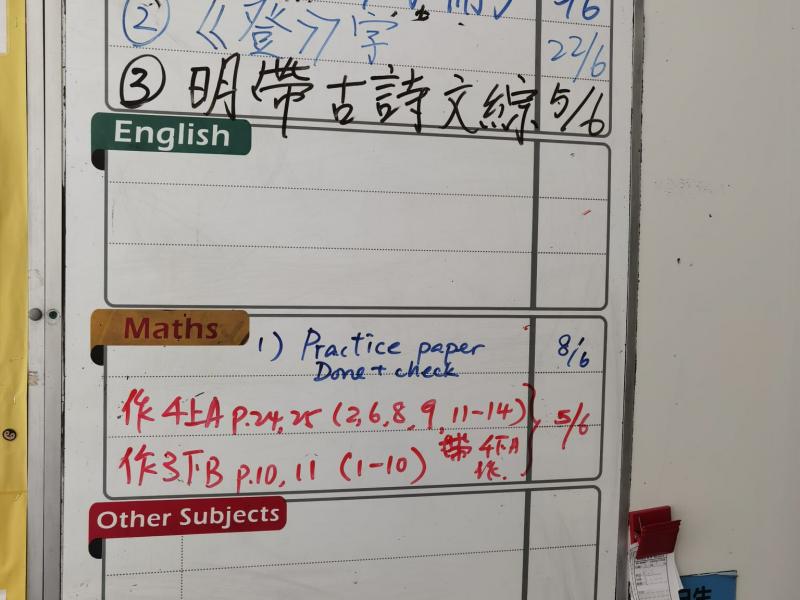 16
② 《登》字 22/6
③ 明帶古詩文綜 5/6
English
Maths
1) Practice paper 8/6
Done + check
作4上A p.24,25 (2,6,8,9,11-14) 5/6
作3下B p.10,11 (1-10) 帶4下A
作.
Other Subjects